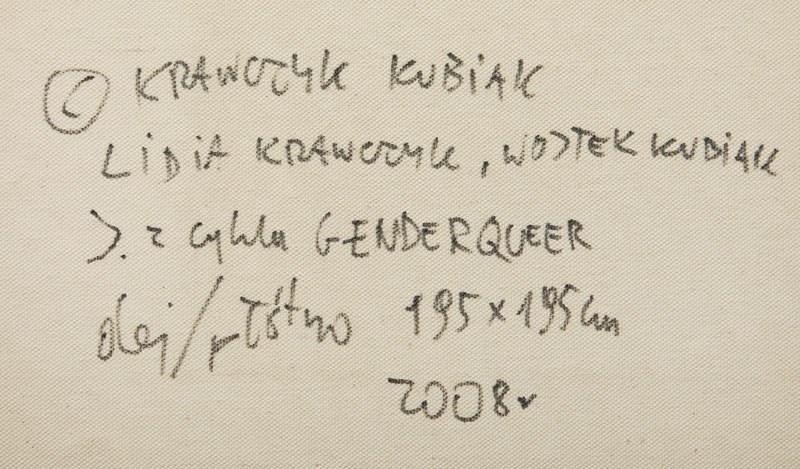 © KRAWCZYK KUBiAK
LiDiA KRAWCZYK, WOJTEK KUBiAK
J. z cyklu GENDERQUEER
olej/płótno 195 x 195 cm
2008r